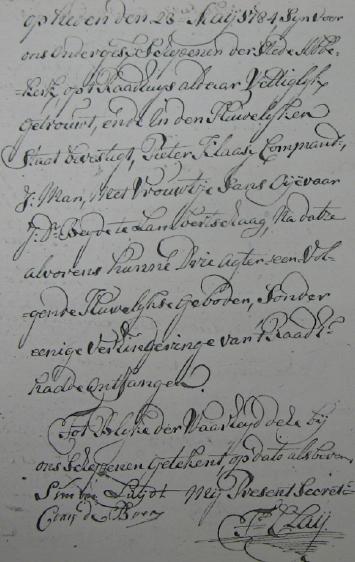 op heeden den 28 Maij 1784 Syn voor
ons Ondergesz: Schepenen der Stede Abbe-
=kerk, op t Raadhuys aldaar Wettiglyk
getrouwt, ende in den Huwelyken
Staat bevestigt, Pieter Klaasz Compaan,
J: Man, Met Vrouwtje Jans
J: Dr: Beyde te Lambertschaag, Na datze
alvorens hunne Drie agter-een-Vol-
=gende Huwelykse geboden, Sonder
eenige Verhinderinge van't Raadh:
hadde ontfangen.
Tot blyke der Waarheyd deze bij
ons Schepenen getekent, op dato als boven,
Sijmon Mij Present Secret:
C: van de